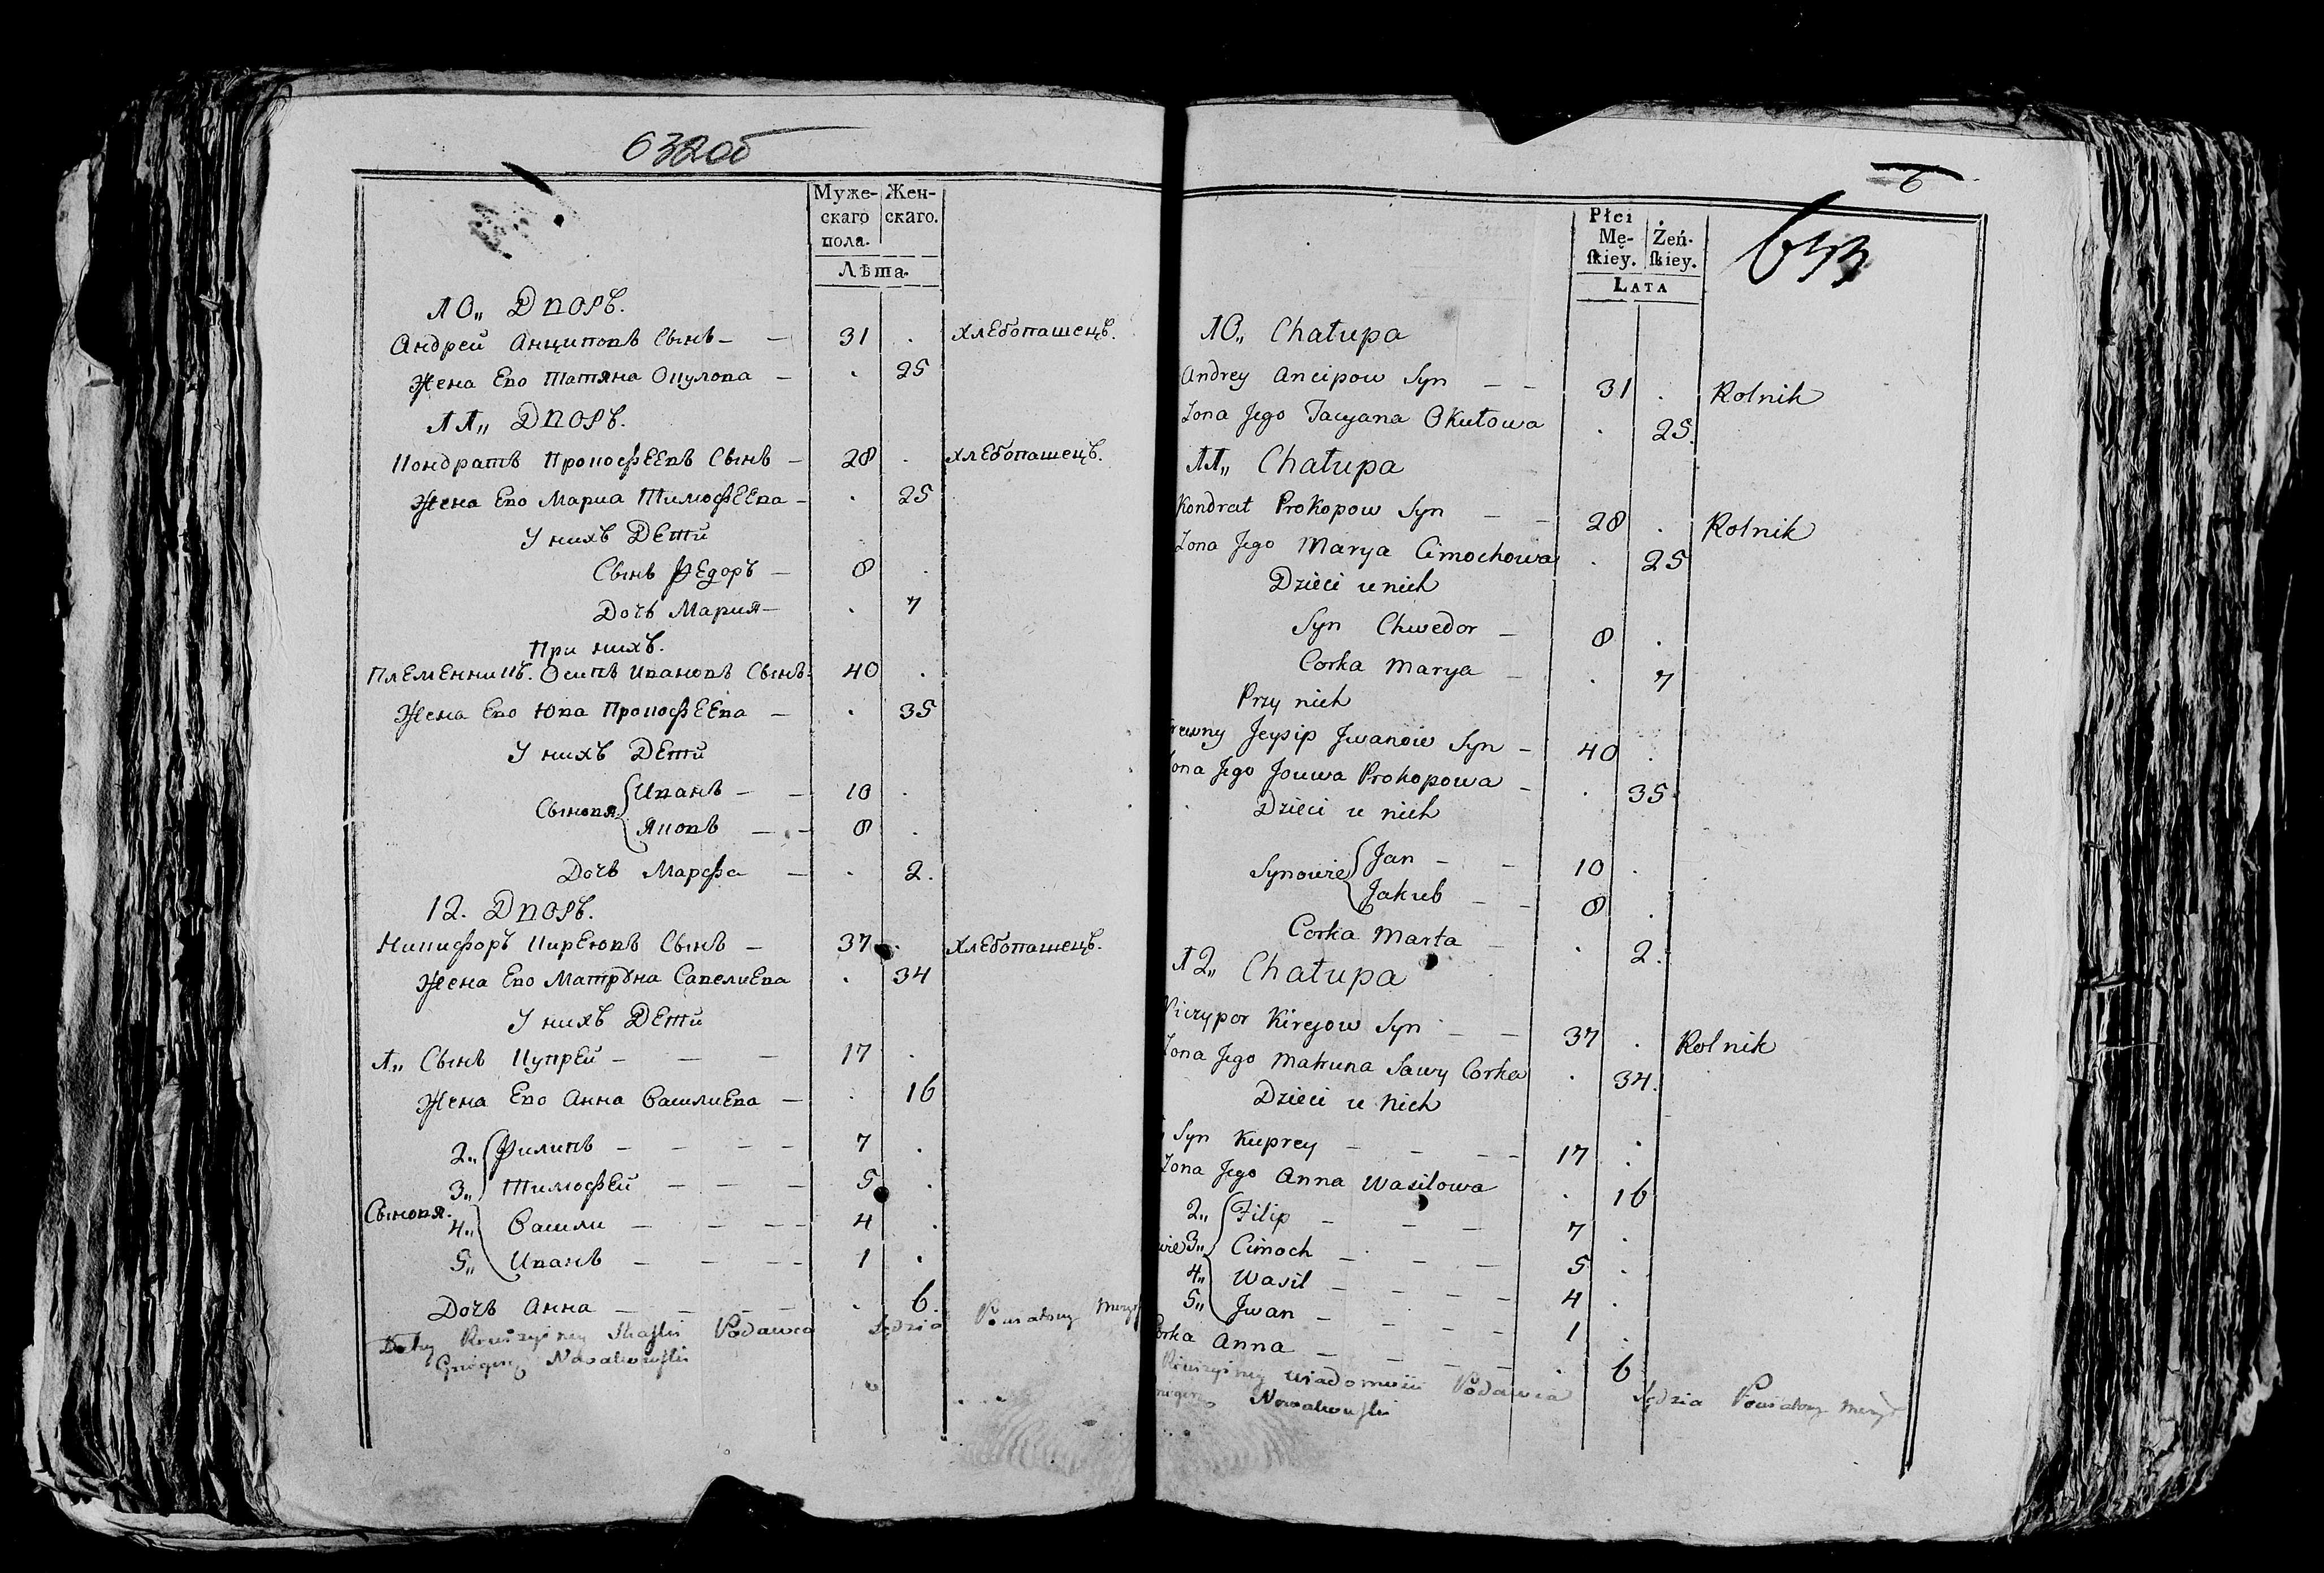 632об
Муже- Жен-
скаго скаго.
пола.
Лѣта.
10„ Дворъ.
Андрей Анциповъ Сынъ — — 31 . хлебопашецъ.
Жена Ево Татяна Окулова — . 25
11„ Дворъ.
Кондратъ Прокофеевъ Сынъ — 28 . хлебопашецъ.
Жена Ево Мариа Тимофеева — . 25
У нихъ Дети
Сынъ Федоръ — 8 .
Дочь Мария — . 7
При нихъ.
Племенникъ. Осипъ Ивановъ Сынъ. 40 .
Жена Ево Юва Прокофеева — . 35
У нихъ Дети
Сыновя { Иванъ — — 10 .
Яковъ — — 8 .
Дочь Марфа — . 2.
12. Дворъ.
Никифоръ Киреювъ Сынъ — 37 . хлебопашецъ.
Жена Ево Матрона Савелиева . 34
У нихъ Дети
1„ Сынъ Купрей — — — 17 .
Жена Ево Анна Василиева — . 16
2„ Филипъ — — — — 7 .
3„ Тимофей — — — 5 .
Сыновя.
4„ Васили — — — — 4 .
5„ Иванъ — — — — 1 .
Дочь Анна — — — — . 6.
Rewizyiney Skaſki Podawca Sędzia Powiatowy
6
633
Płci
Mę- Żeń-
ſkiey. ſkiey.
LATA
10„ Chałupa
Andrey Ancipow Syn — — 31 . Rolnik
Zona Jego Tacyana Okułowa . 25.
11„ Chałupa
Kondrat Prokopow Syn — — 28 . Rolnik
Zona Jego Marya Cimochowa . 25
Dzieci u nich
Syn Chwedor — 8 .
Corka Marya — . 7
Przy nich
rewny Jeysip Jwanow Syn — 40 .
ona Jego Jouwa Prokopowa — . 35.
Dzieci u nich
Synowie { Jan — — 10 .
Jakub — — 8 .
Corka Marta — . 2.
12„ Chałupa
Niczypor Kirejow Syn — — 37 . Rolnik
Zona Jego Matruna Sawy Corka . 34.
Dzieci u Nich
Syn Kuprey — — — — 17 .
Zona Jego Anna Wasilowa . 16
2„ Filip — — — 7 .
3„ Cimoch — — — 5 .
4„ Wasil — — — — 4 .
5„ Jwan — — — — 1 .
orka Anna — — — — . 6
Rewizyiney wiadomości Podawca Sędzia Powiatowy